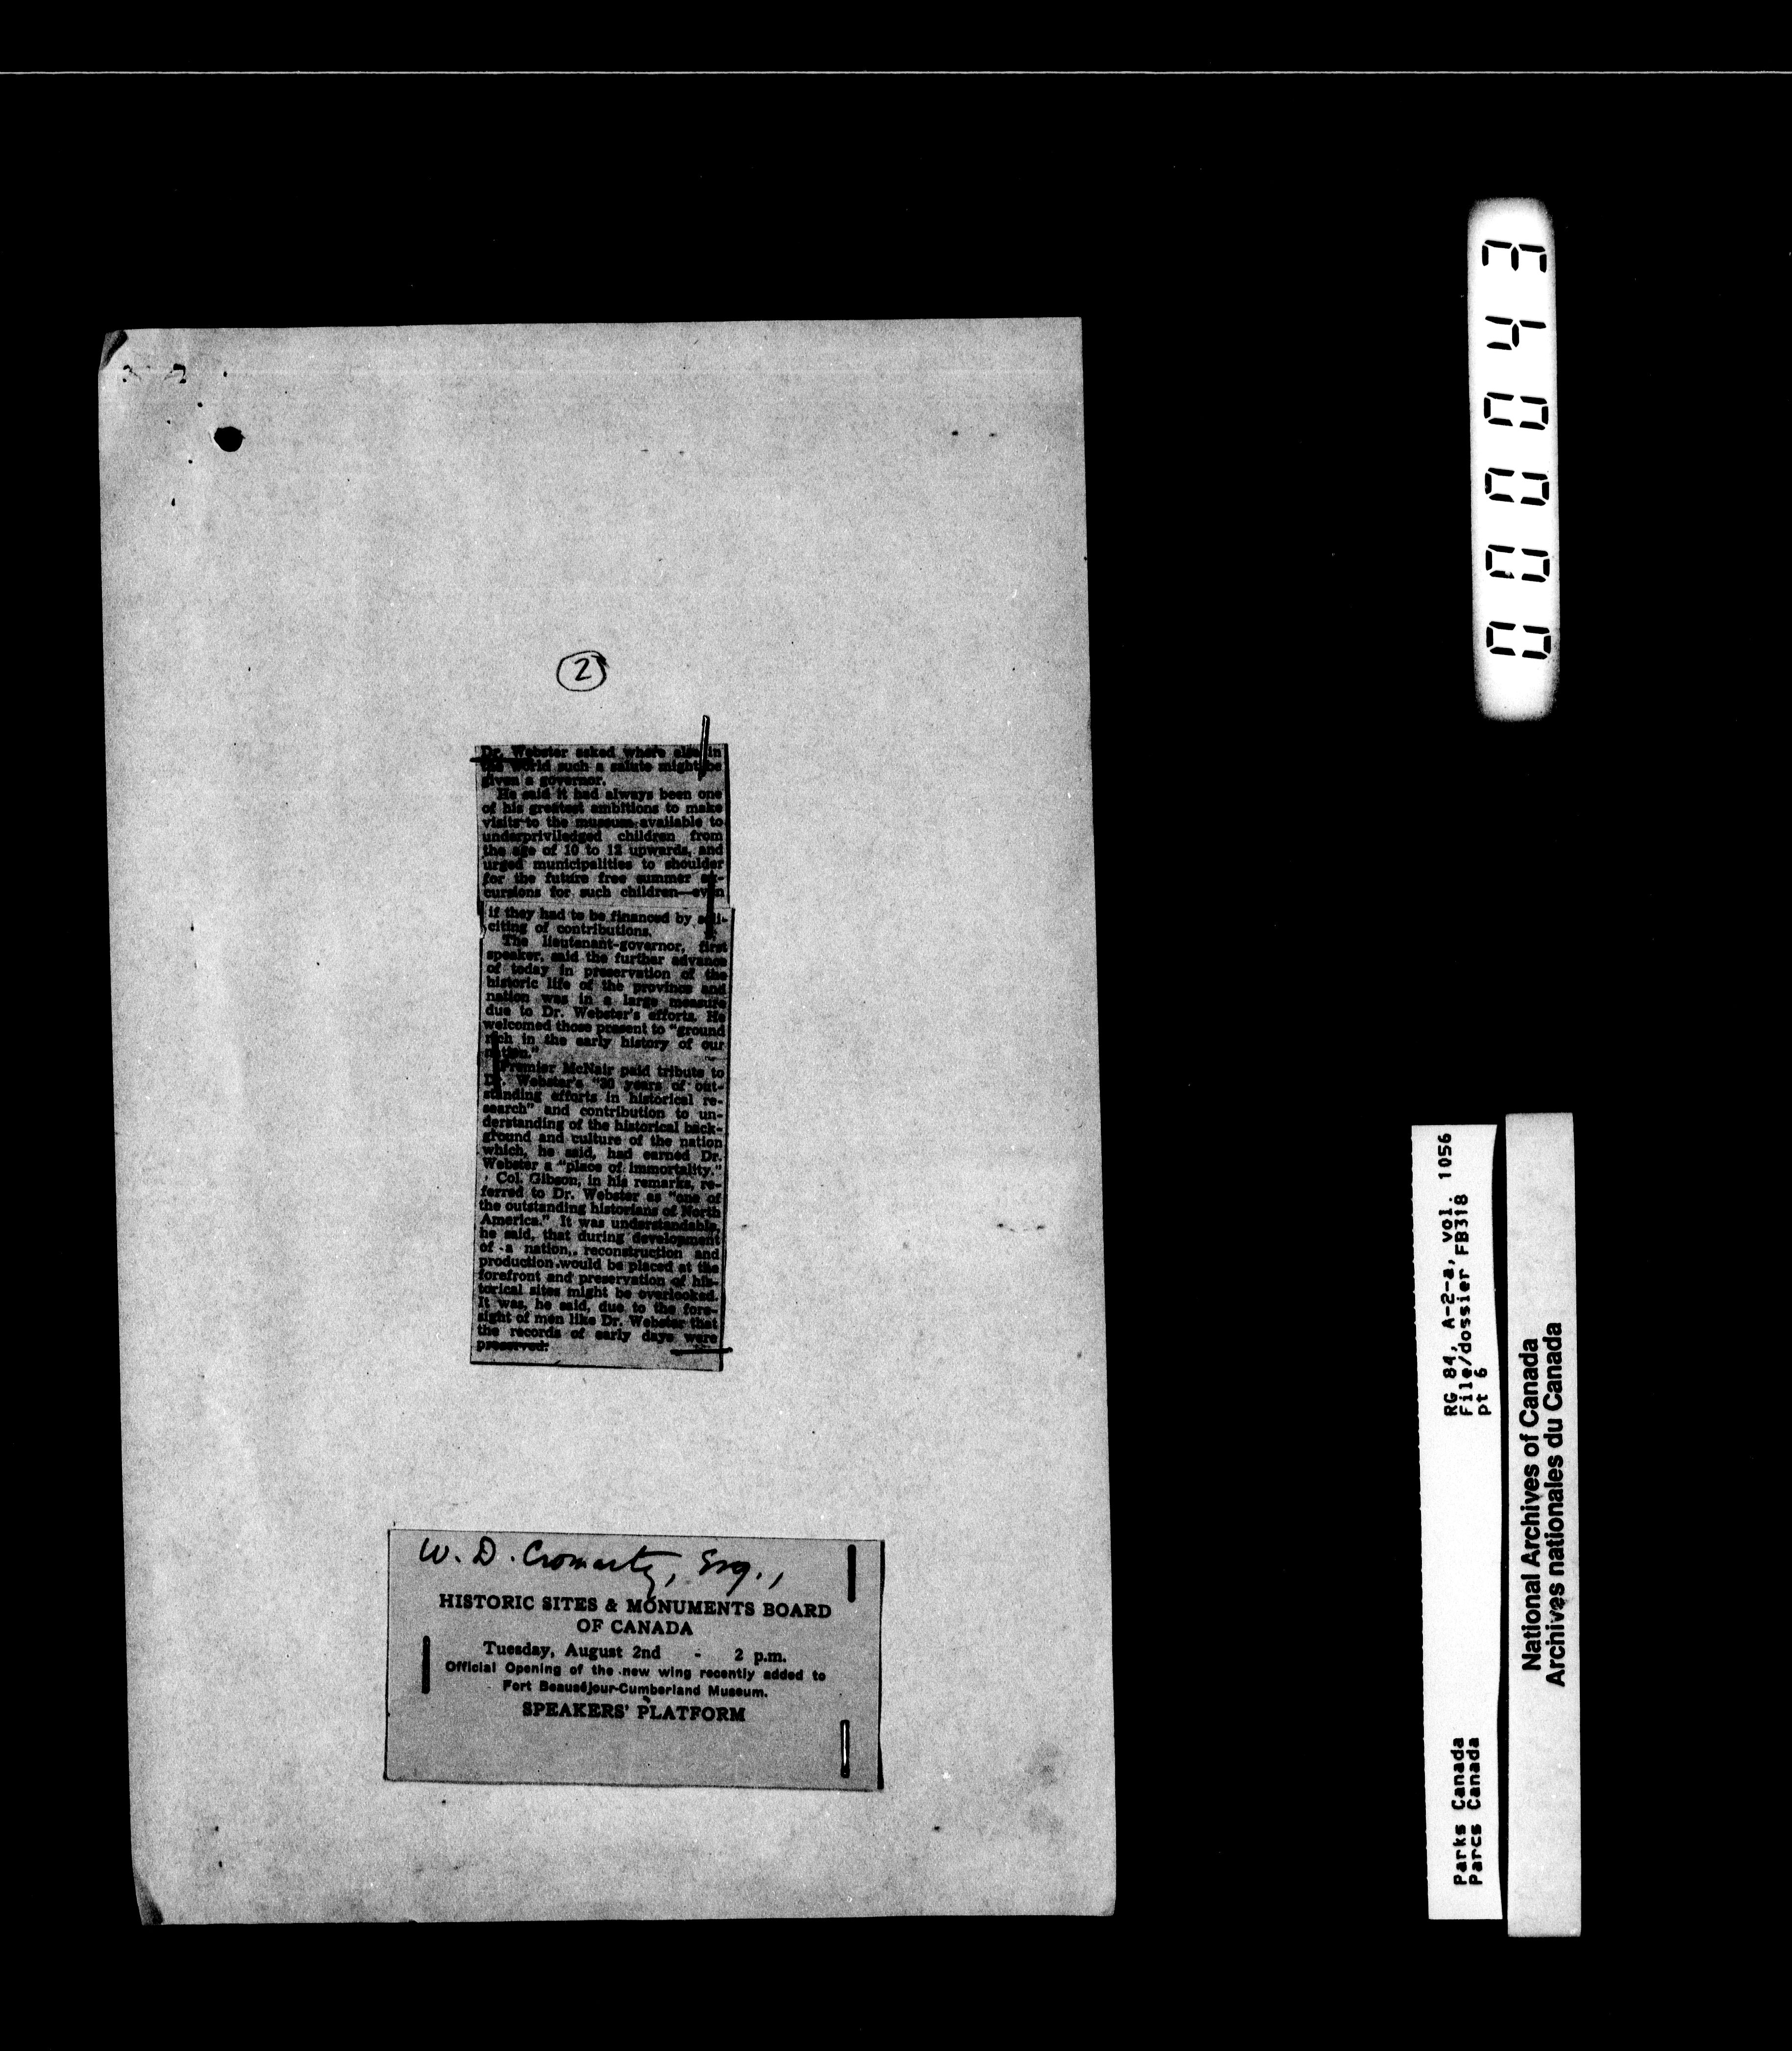 2
Dr. Webster asked where else in
the world such a salute might be
given a governor.
He said it had always been one
of his greatest ambitions to make
visits to the museum available to
underpriviledged children from
the age of 10 to 12 upwards, and
urged municipalities to shoulder
for the future free summer ex-
cursions for such children—even
if they had to be financed by soli-
citing of contributions.
The lieutenant-governor, first
speaker, said the further advance
of today in preservation of the
historic life of the province and
nation was in a large measure
due to Dr. Webster's efforts. He
welcomed those present to "ground
rich in the early history of our
nation."
Premier McNair paid tribute to
Dr. Webster's "30 years of out-
standing efforts in historical re-
search" and contribution to un-
derstanding of the historical back-
ground and culture of the nation
which, he said, had earned Dr.
Webster a "place of immortality."
Col. Gibson, in his remarks, re-
ferred to Dr. Webster as "one of
the outstanding historians of North
America." It was understandable,
he said, that during development
of a nation, reconstruction and
production would be placed at the
forefront and preservation of his-
torical sites might be overlooked.
It was, he said, due to the fore-
sight of men like Dr. Webster that
the records of early days were
preserved.
W. D. Cromarty, Esq.,
HISTORIC SITES & MONUMENTS BOARD
OF CANADA
Tuesday, August 2nd - 2 p.m.
Official Opening of the new wing recently added to
Fort Beauséjour-Cumberland Museum.
SPEAKERS' PLATFORM
000043
RG 84, A-2-a, vol. 1056
File/dossier FB318
pt 6
Parks Canada
Parcs Canada
National Archives of Canada
Archives nationales du Canada